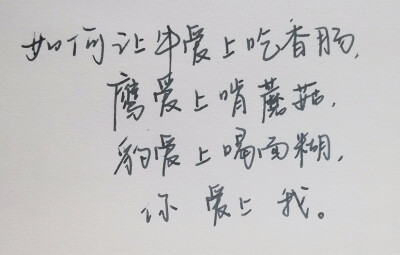 如何让牛爱上吃香肠，
鹰爱上啃蘑菇，
豹爱上喝面糊，
你爱上我。